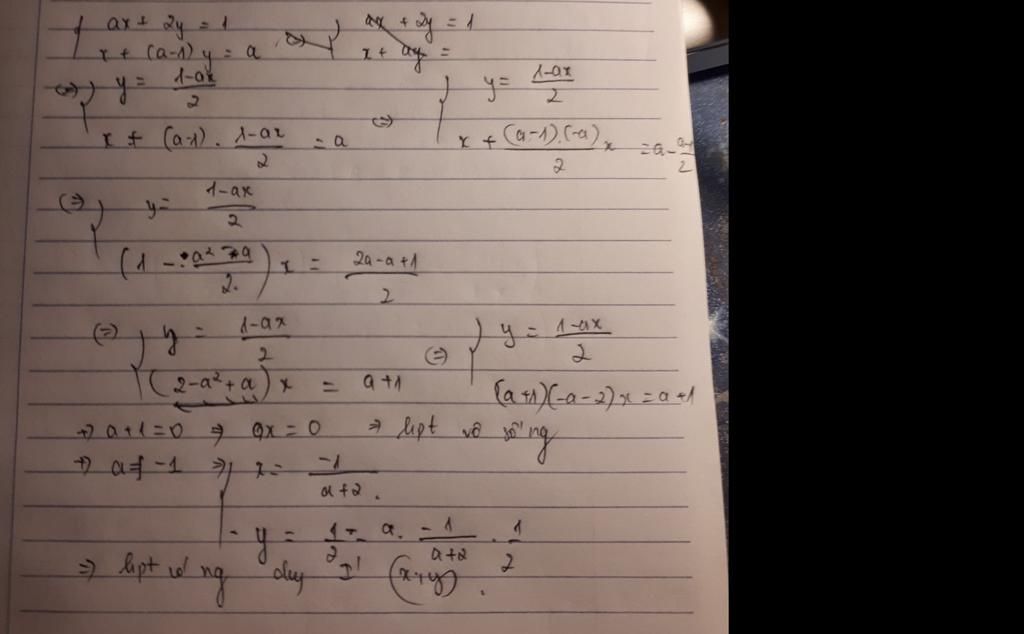 { ax + 2y = 1 { ax + 2y = 1
x + (a-1) y = a (=) x + ay =
(=) { y = (1-ax)/2 { y = (1-ax)/2
x + (a-1) . (1-ax)/2 = a (=) x + ((a-1).(-a))/2 x = a - (a-1)/2
(=) { y = (1-ax)/2
(1 - (a² - a)/2) x = (2a-a+1)/2
(=) { y = (1-ax)/2 (=) { y = (1-ax)/2
(2-a²+a) x = a+1 (a+1)(-a-2)x = a+1
+) a+1=0 => 0x = 0 => hpt vô số ng
+) a ≠ -1 => { x = -1/(a+2).
- y = 1/2 - a . -1/(a+2) . 1/2
=> hpt có ng duy I' (x,y).